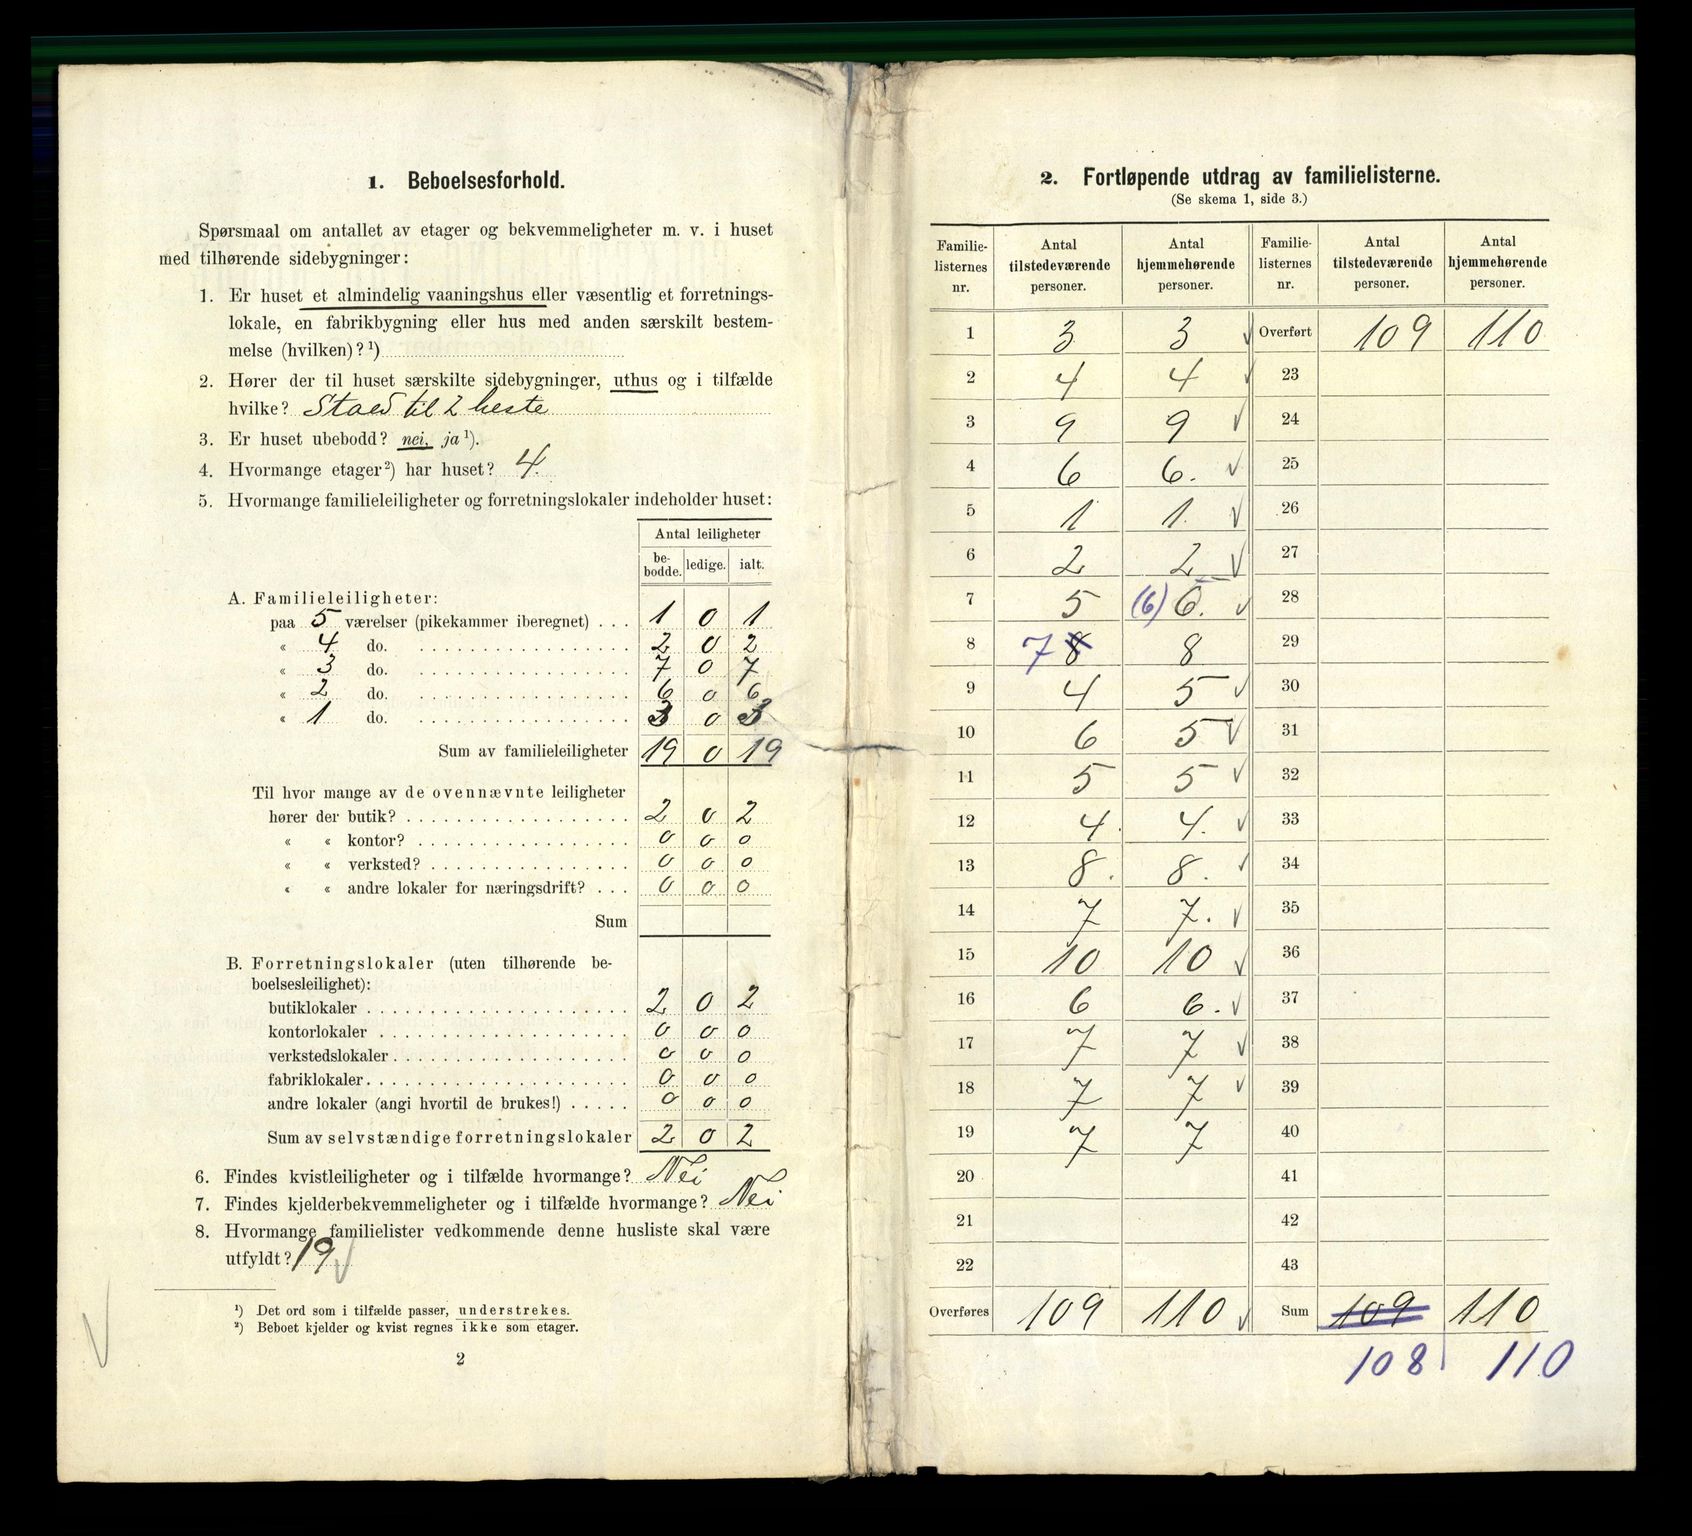 1. Beboelsesforhold.
Spørsmaal om antallet av etager og bekvemmeligheter m. v. i huset
med tilhørende sidebygninger:
1. Er huset et almindelig vaaningshus eller væsentlig et forretnings-
lokale, en fabrikbygning eller hus med anden særskilt bestem-
melse (hvilken)?¹)
2. Hører der til huset særskilte sidebygninger, uthus og i tilfælde
hvilke? Stald til 2 heste
3. Er huset ubebodd? nei, ja¹).
4. Hvormange etager²) har huset? 4.
5. Hvormange familieleiligheter og forretningslokaler indeholder huset:
Antal leiligheter
be-bodde. ledige. ialt.
A. Familieleiligheter:
paa 5 værelser (pikekammer iberegnet) . . . 1 0 1
« 4 do. 2 0 2
« 3 do. 7 0 7
« 2 do. 6 0 6
« 1 do. 3 0 3
Sum av familieleiligheter 19 0 19
Til hvor mange av de ovennævnte leiligheter
hører der butik? 2 0 2
« « kontor? 0 0 0
« « verksted? 0 0 0
« « andre lokaler for næringsdrift? . . . 0 0 0
Sum
B. Forretningslokaler (uten tilhørende be-
boelsesleilighet):
butiklokaler 2 0 2
kontorlokaler 0 0 0
verkstedslokaler 0 0 0
fabriklokaler 0 0 0
andre lokaler (angi hvortil de brukes!) 0 0 0
Sum av selvstændige forretningslokaler 2 0 2
6. Findes kvistleiligheter og i tilfælde hvormange? Nei
7. Findes kjelderbekvemmeligheter og i tilfælde hvormange? Nei
8. Hvormange familielister vedkommende denne husliste skal være
utfyldt? 19
¹) Det ord som i tilfælde passer, understrekes.
²) Beboet kjelder og kvist regnes ikke som etager.
2
2. Fortløpende utdrag av familielisterne.
(Se skema 1, side 3.)
Familie-listernes nr. Antal tilstedeværende personer. Antal hjemmehørende personer. Familie-listernes nr. Antal tilstedeværende personer. Antal hjemmehørende personer.
1 3 3 Overført 109 110
2 4 4 23
3 9 9 24
4 6 6. 25
5 1 1. 26
6 2 2 27
7 5 (6) 6. 28
8 7 8 8 29
9 4 5 30
10 6 5 31
11 5 5 32
12 4. 4. 33
13 8. 8. 34
14 7 7. 35
15 10 10 36
16 6 6. 37
17 7 7 38
18 7 7 39
19 7 7 40
20 41
21 42
22 43
Overføres 109 110 Sum 109 110
108 110